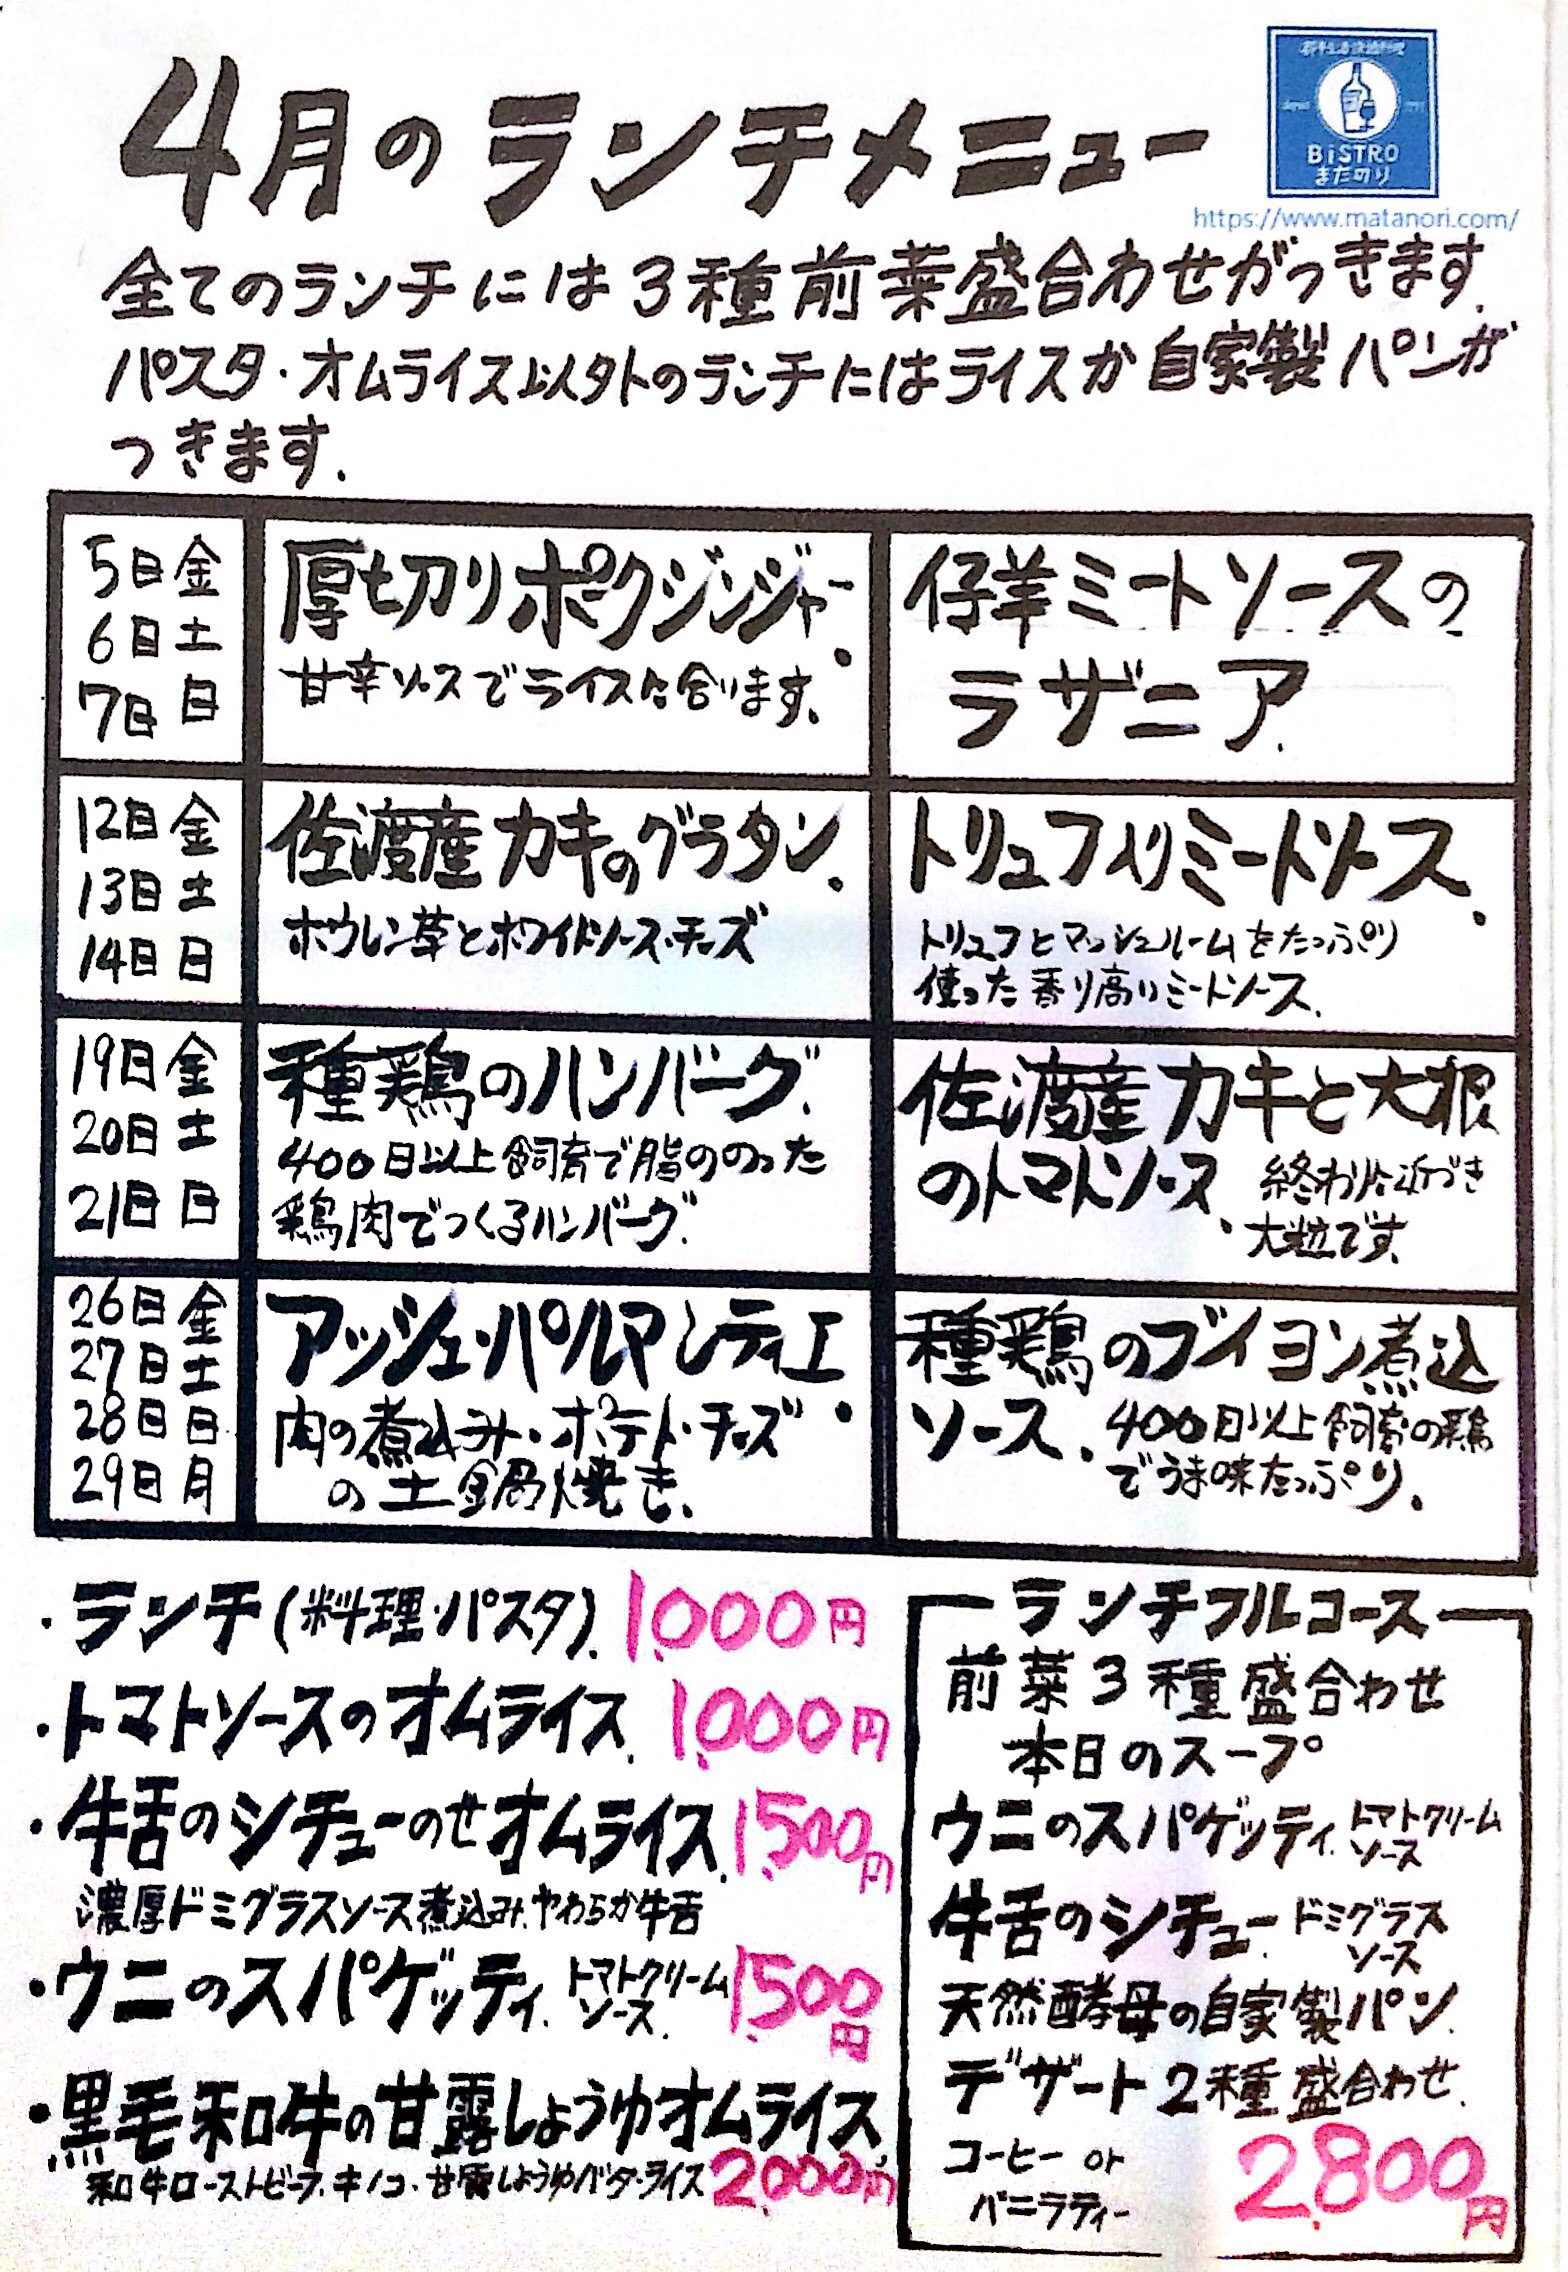 4月のランチメニュー
BiSTRO
またのり
https://www.matanori.com/
全てのランチには3種前菜盛合わせがつきます.
パスタ・オムライス以外のランチにはライスか自家製パンが
つきます.
5日金
6日土
7日日
厚切りポークジンジャー.
甘辛ソースでライスに合います.
仔羊ミートソースの
ラザニア.
12日金
13日土
14日日
佐渡産カキのグラタン.
ホウレン草とホワイトソース・チーズ
トリュフ入りミートソース.
トリュフとマッシュルームをたっぷり
使った香り高いミートソース.
19日金
20日土
21日日
種鶏のハンバーグ.
400日以上飼育で脂ののった
鶏肉でつくるハンバーグ.
佐渡産カキと大根
のトマトソース. 終わりに近づき
大粒です.
26日金
27日土
28日日
29日月
アッシュ・パルマンティエ.
肉の煮込み・ポテト・チーズ
の土鍋焼き.
種鶏のブイヨン煮込
ソース. 400日以上飼育の鶏
でうま味たっぷり.
・ランチ(料理・パスタ). 1,000円
・トマトソースのオムライス. 1,000円
・牛舌のシチューのせオムライス. 1,500円
濃厚ドミグラスソース煮込み.やわらか牛舌
・ウニのスパゲッティ. トマトクリーム
ソース. 1,500円
・黒毛和牛の甘露しょうゆオムライス.
和牛ローストビーフ.キノコ.甘露しょうゆバターライス 2,000円
ランチフルコース
前菜3種盛合わせ
本日のスープ
ウニのスパゲッティ. トマトクリーム
ソース
牛舌のシチュー. ドミグラス
ソース
天然酵母の自家製パン.
デザート2種盛合わせ.
コーヒー or
バニラティー
2,800円